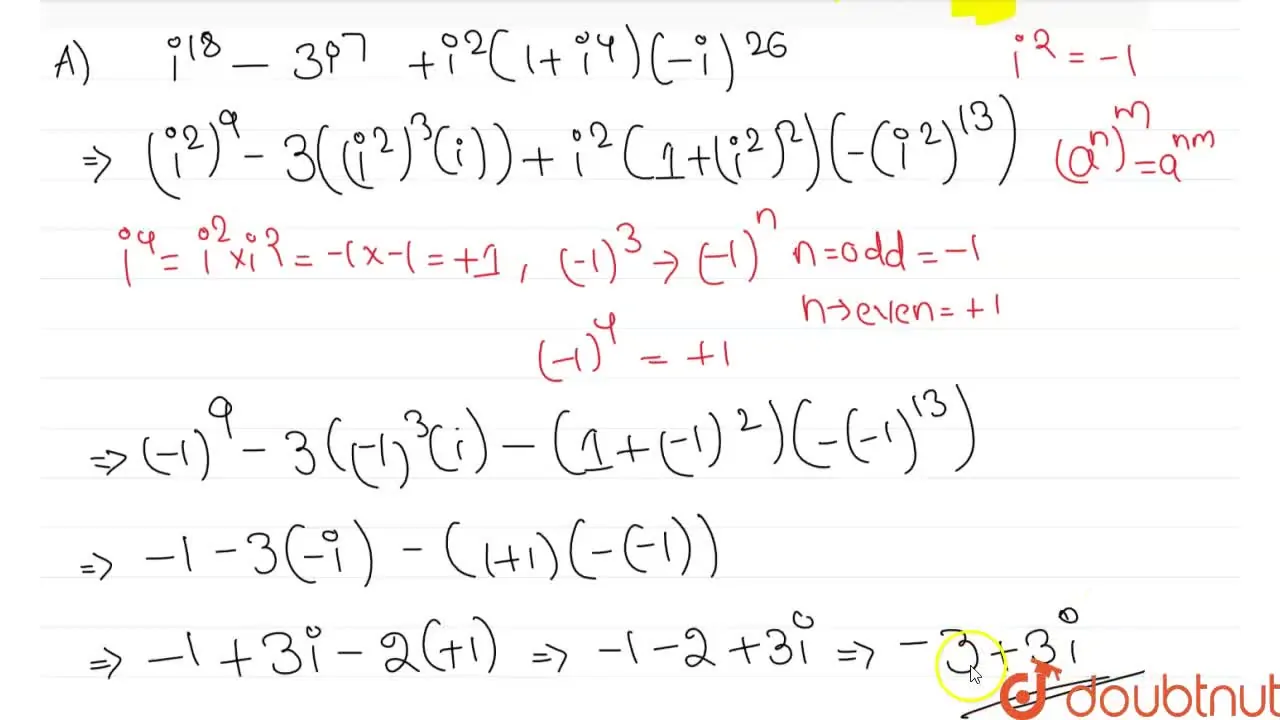 A) i¹⁸ - 3i⁷ + i²(1+i⁴)(-i)²⁶
i² = -1
⇒ (i²)⁹ - 3((i²)³(i)) + i²(1+(i²)²)(-(i²)¹³)
(aⁿ)ᵐ = aⁿᵐ
i⁴ = i² × i² = -1 × -1 = +1, (-1)³ → (-1)ⁿ n = odd = -1
n → even = +1
(-1)⁴ = +1
⇒ (-1)⁹ - 3((-1)³(i) - (1+(-1)²)(-(-1)¹³)
⇒ -1 - 3(-i) - (1+1)(-(-1))
⇒ -1 + 3i - 2(+1) ⇒ -1 - 2 + 3i ⇒ -3 + 3i
doubtnut